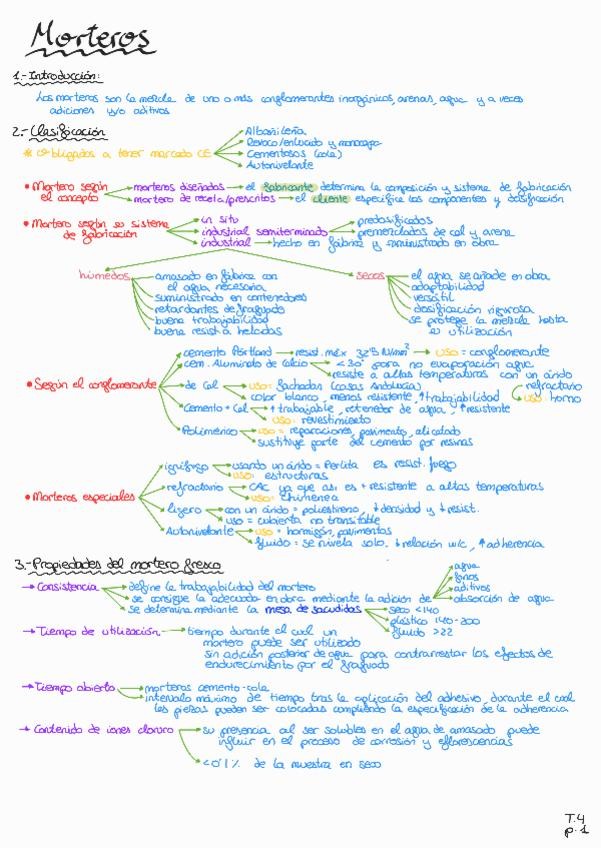 Morteros
1.- Introducción:
Los morteros son la mezcla de uno o más conglomerantes inorgánicos, arenas, agua y a veces
adiciones y/o aditivos.
2.- Clasificación
* Obligados a tener marcado CE
Albañilería
Revoco/enlucido y monocapa
Cementosos (cola)
Autonivelante
• Mortero según
el concepto
morteros diseñados → el fabricante determina la composición y sistema de fabricación
mortero de receta/prescritos → el cliente especifica los componentes y dosificación
• Mortero según su sistema
de fabricación
in situ
industrial semiterminado
predosificados
premezclados de cal y arena
industrial → hecho en fábrica y suministrado en obra
húmedos
amasado en fábrica con
el agua necesaria
suministrado en contenedores
retardantes de fraguado
buena trabajabilidad
buena resist. a heladas
secos
el agua se añade en obra
adaptabilidad
versátil
dosificación rigurosa
se protege la mezcla hasta
su utilización
• Según el conglomerante
cemento Pórtland → resist. máx 32'5 N/mm² → uso = conglomerante
cem. Aluminato de Calcio
<30° para no evaporación agua
resiste a altas temperaturas con un árido
refractario
uso: horno
de Cal
uso: fachadas (casas Andalucía)
color blanco, menos resistente, ↑trabajabilidad
Cemento + Cal
↑ trabajable, retenedor de agua, ↑resistente
uso: revestimiento
Polimérico
uso = reparaciones, pavimento, alicatado
sustituye parte del cemento por resinas
• Morteros especiales
ignífugo
usando un árido = Perlita es resist. fuego
uso: estructuras
refractario
CAC ya que así es + resistente a altas temperaturas
uso: chimenea
ligero
con un árido = poliestireno, ↓densidad y ↓resist.
uso = cubierta no transitable
Autonivelante
uso = hormigón, pavimentos
fluido = se nivela solo. ↓relación w/c, ↑adherencia
3.- Propiedades del mortero fresco
→ Consistencia
define la trabajabilidad del mortero
se consigue la adecuada en obra mediante la adición de
agua
finos
aditivos
absorción de agua
se determina mediante la mesa de sacudidas
seco <140
plástico 140-200
fluido >22
→ Tiempo de utilización → tiempo durante el cual un
mortero puede ser utilizado
sin adición posterior de agua para contrarrestar los efectos de
endurecimiento por el fraguado
→ Tiempo abierto
morteros cemento-cola
intervalo máximo de tiempo tras la aplicación del adhesivo, durante el cual
las piezas pueden ser colocadas cumpliendo la especificación de la adherencia
→ Contenido de iones cloruro
su presencia al ser solubles en el agua de amasado puede
influir en el proceso de corrosión y eflorescencias
<0'1% de la muestra en seco
T.4
p.1